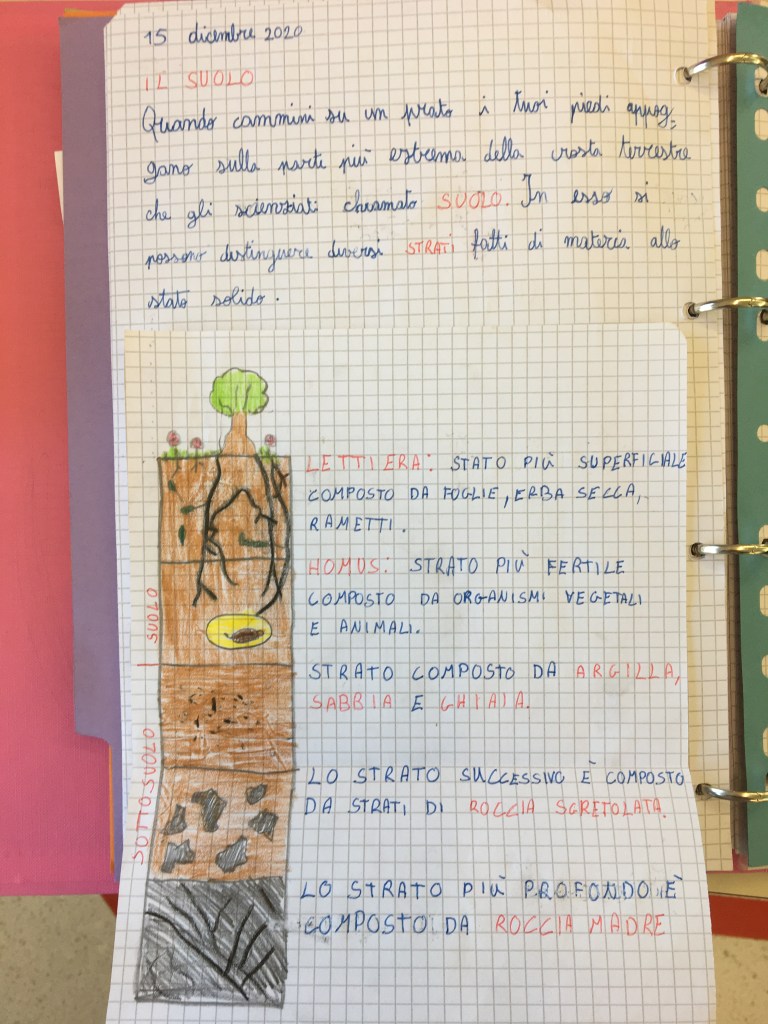 15 dicembre 2020
IL SUOLO
Quando cammini su un prato i tuoi piedi appog=
gano sulla parte più estrema della crosta terrestre
che gli scienziati chiamato SUOLO. In esso si
possono distinguere diversi STRATI fatti di materia allo
stato solido.
LETTIERA: STATO PIÙ SUPERFICIALE
COMPOSTO DA FOGLIE, ERBA SECCA,
RAMETTI.
HOMUS: STRATO PIÙ FERTILE
COMPOSTO DA ORGANISMI VEGETALI
E ANIMALI.
SUOLO
STRATO COMPOSTO DA ARGILLA,
SABBIA E GHIAIA.
SOTTOSUOLO
LO STRATO SUCCESSIVO È COMPOSTO
DA STRATI DI ROCCIA SGRETOLATA.
LO STRATO PIÙ PROFONDO È
COMPOSTO DA ROCCIA MADRE